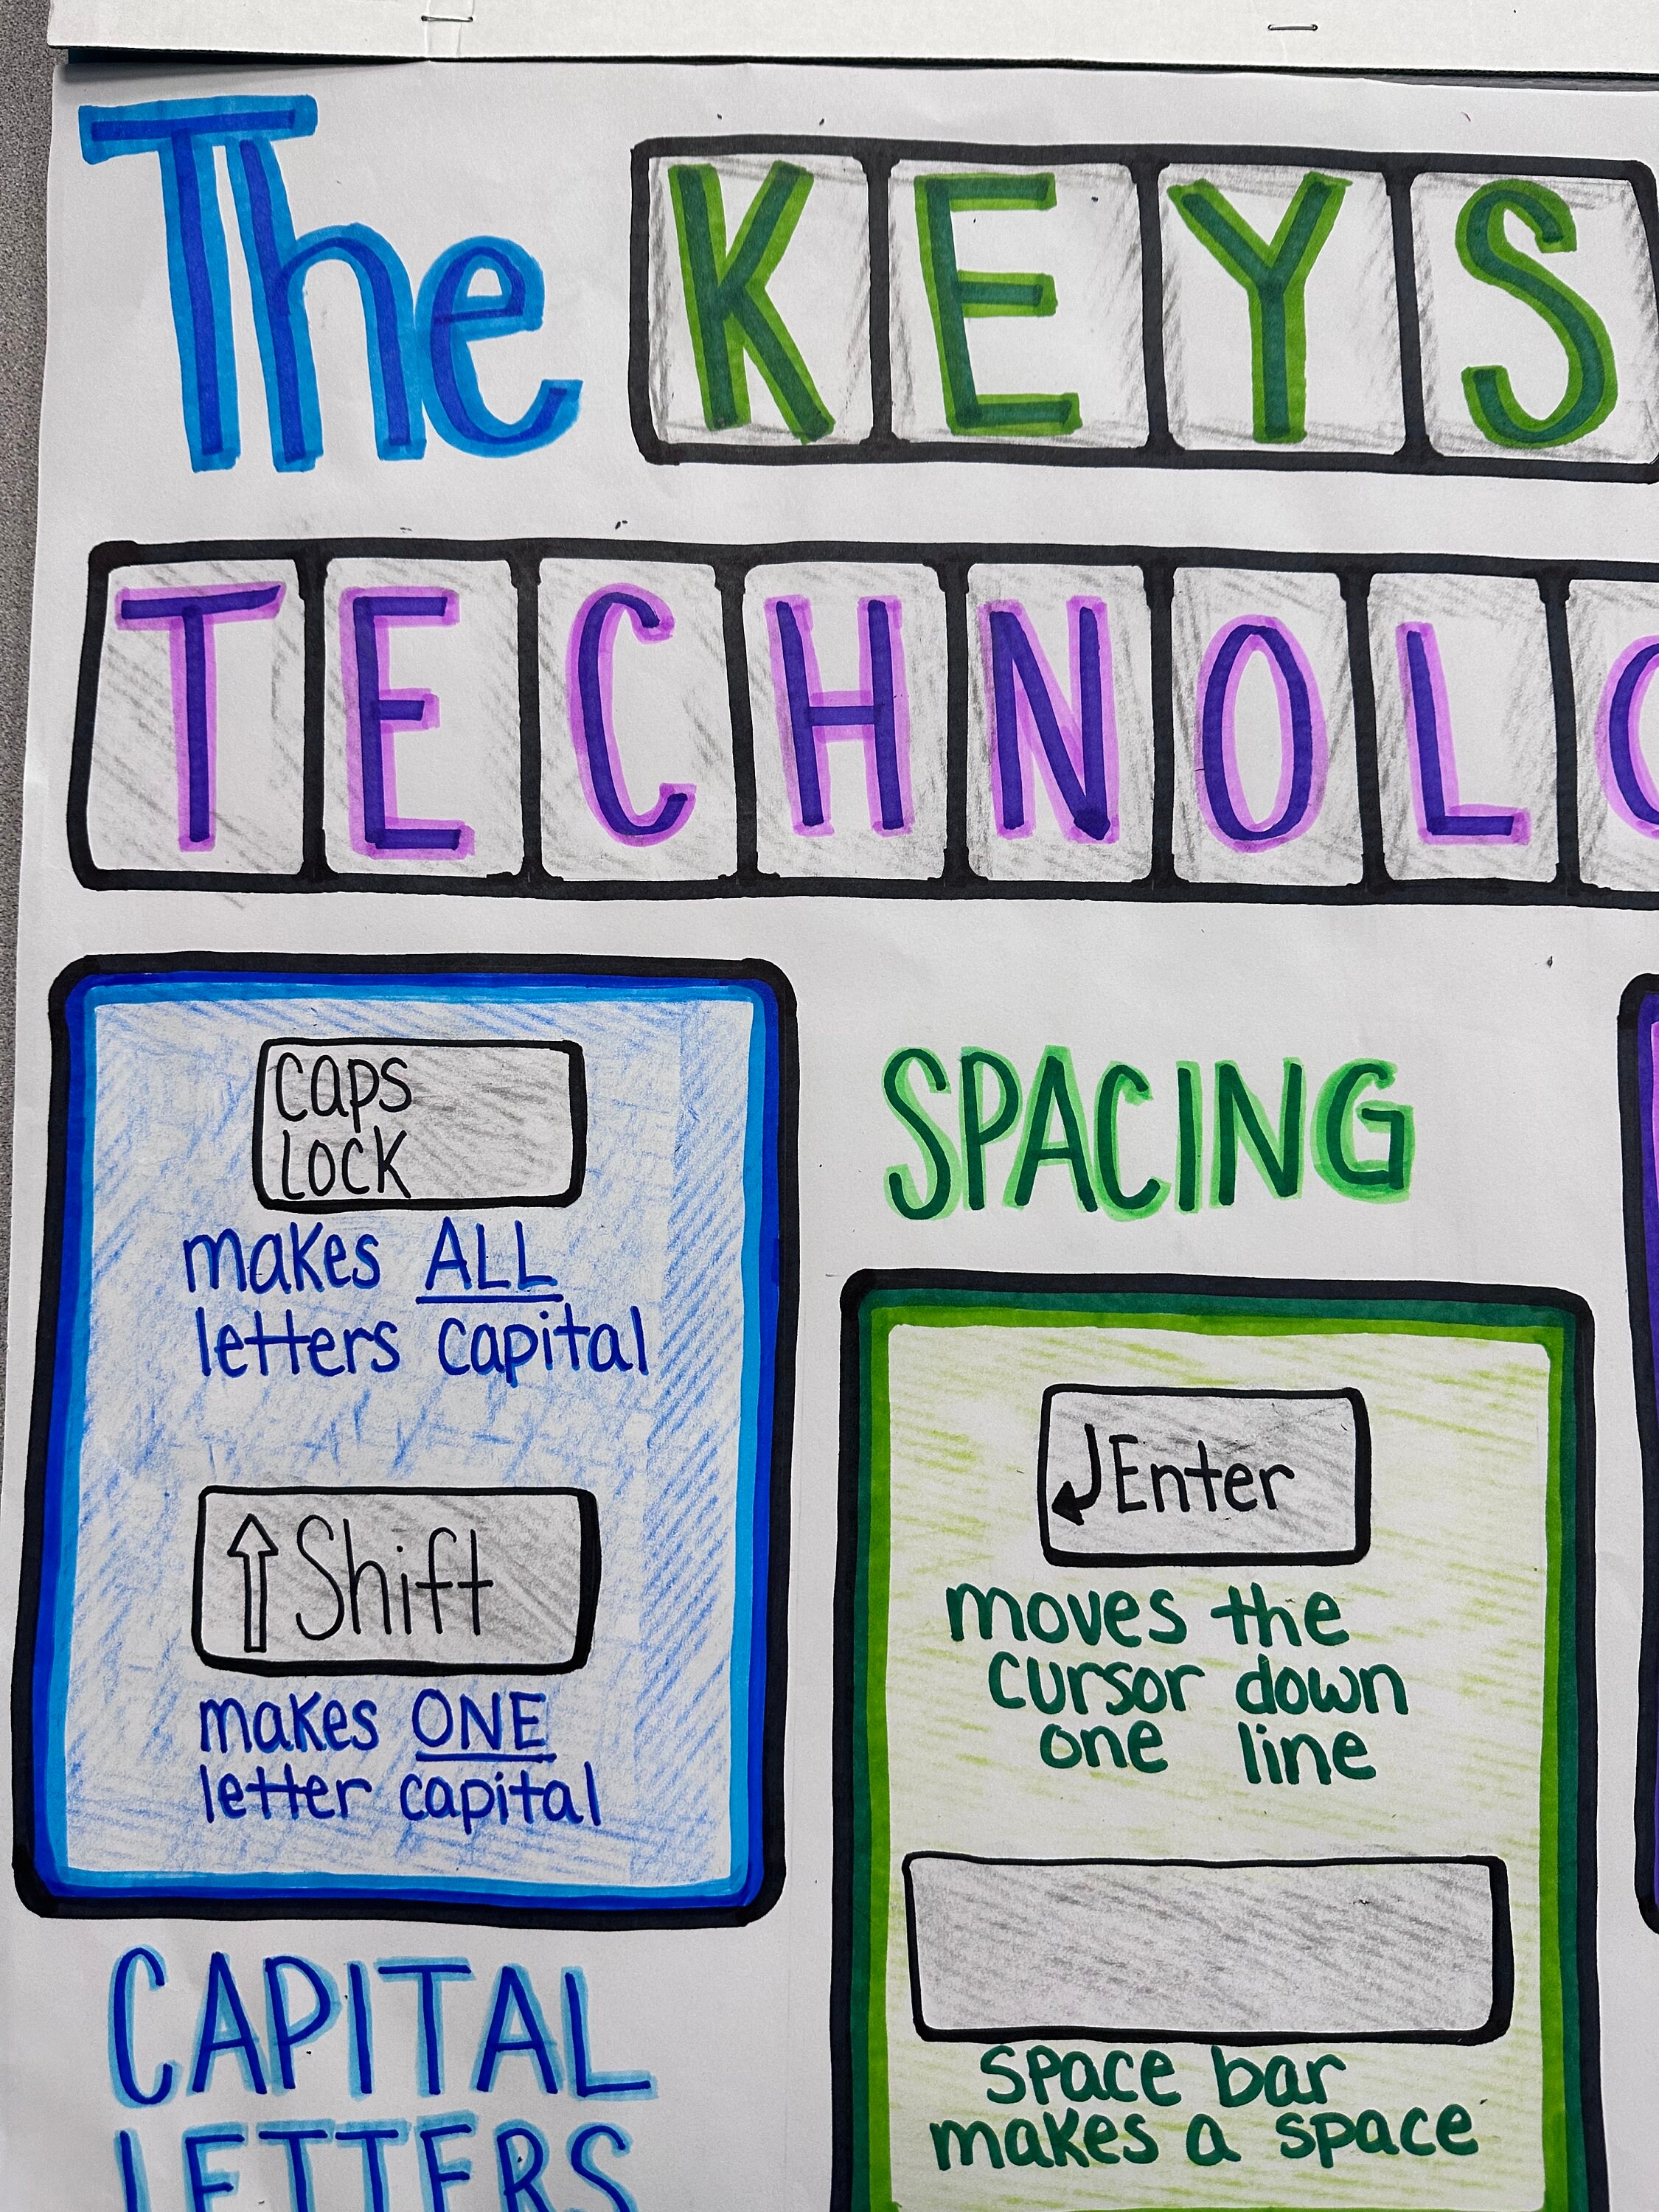 The KEYS
TECHNOLO
caps
LOCK
makes ALL
letters capital
Shift
makes ONE
letter capital
CAPITAL
LETTERS
SPACING
Enter
moves the
cursor down
one line
space bar
makes a space